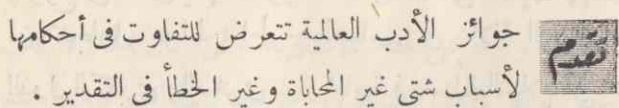 تقدم
جوائز الأدب العالمية تتعرض للتفاوت فى أحكامها
لأسباب شتى غير المحاباة وغير الخطأ فى التقدير .